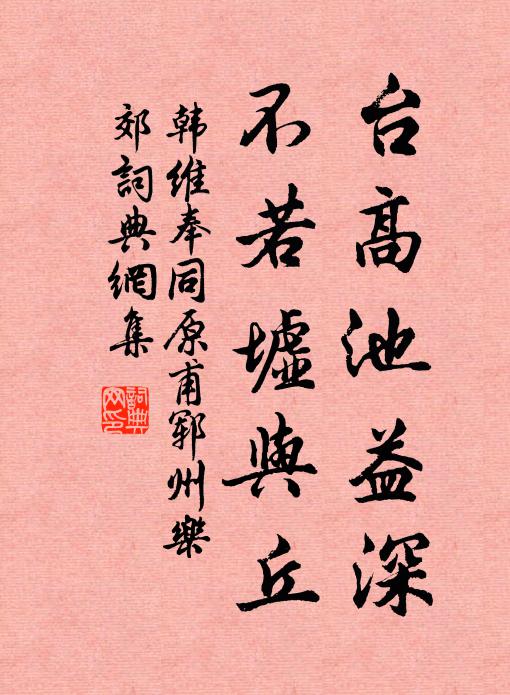 台高池益深
不若墟與丘
韩维奉同原甫郓州樂
郊詞典網集
詞典網印